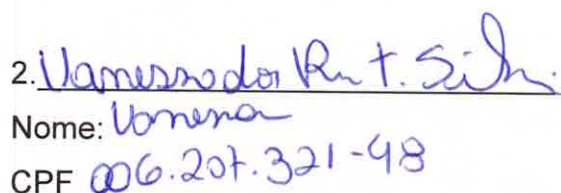 2. Vanessa dos Rn T. Silva
Nome: Vanessa
CPF 006.207.321-48